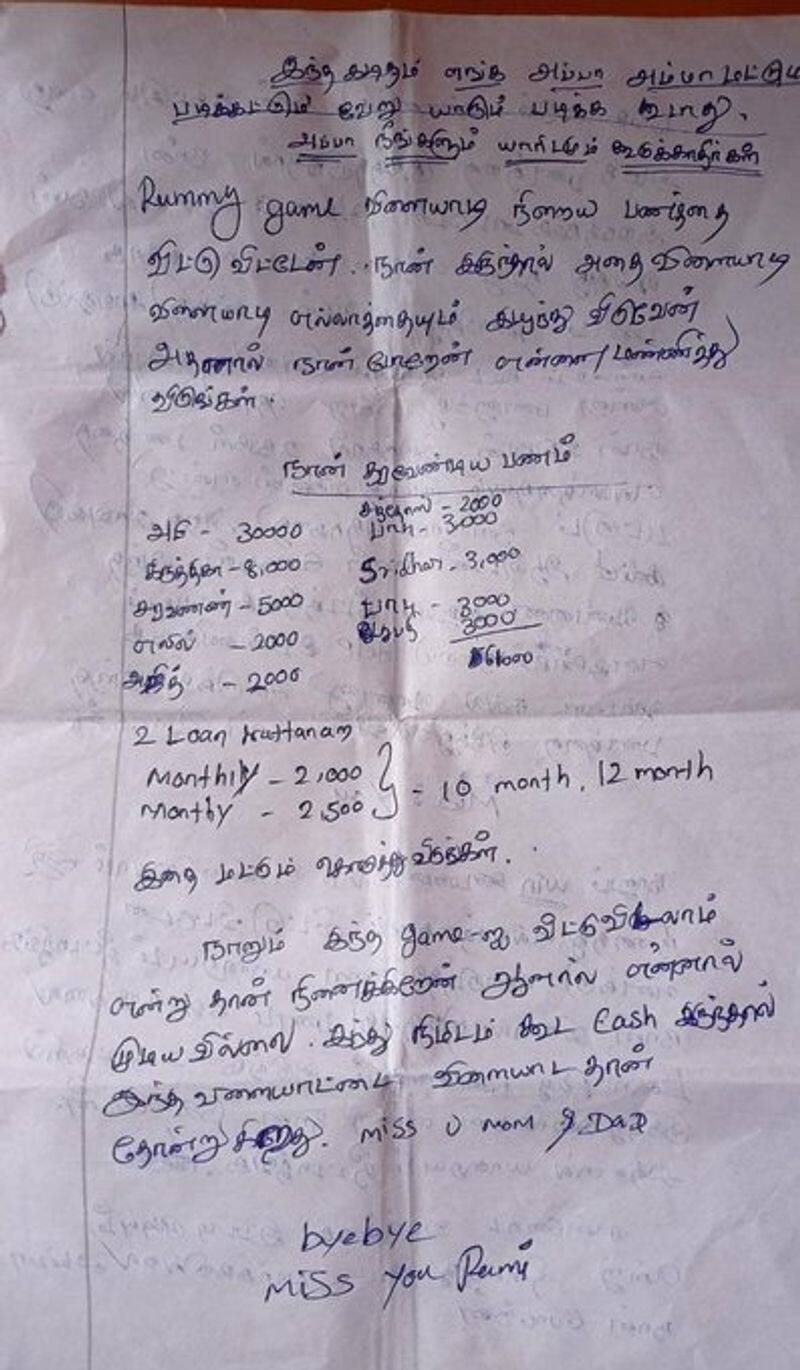 இந்த கடிதம் எங்க அப்பா அம்மா மட்டும்
படிக்கட்டும் வேறு யாரும் படிக்க கூடாது.
அப்பா நீங்களும் யாரிடமும் கூடுக்காதிர்கள்
Rummy game விளையாடி நிறைய பணத்தை
விட்டு விட்டேன். நான் இருந்தால் அதை விளையாடி
விளையாடி எல்லாத்தையும் இழந்து விடுவேன்
அதனால் நான் போறேன் என்னை மன்னித்து
விடுங்கள்.
நான் தரவேண்டிய பணம்
சந்தோஸ் - 2000
- 30000 பாபு - 3,000
கிருத்திகா - 8,000 Sridhar - 3,000
சரவணண் - 5000 பாபு - 3000
எலில் - 2000 3000
அஜித் - 2000 61000
2 Loan
Monthly - 2,000
Monthy - 2,500 } - 10 month, 12 month
இதை மட்டும் கொடுத்து விடுங்கள்.
நானும் இந்த game-ஐ விட்டுவிடலாம்
என்று தான் நினைக்கிறேன் ஆனால் என்னால்
முடிய வில்லை. ஐந்து நிமிடம் கூட Cash இருந்தால்
இந்த விளையாட்டை விளையாட தான்
தோன்றுகிறது. Miss U Mom & Dad
byebye
Miss You Rami